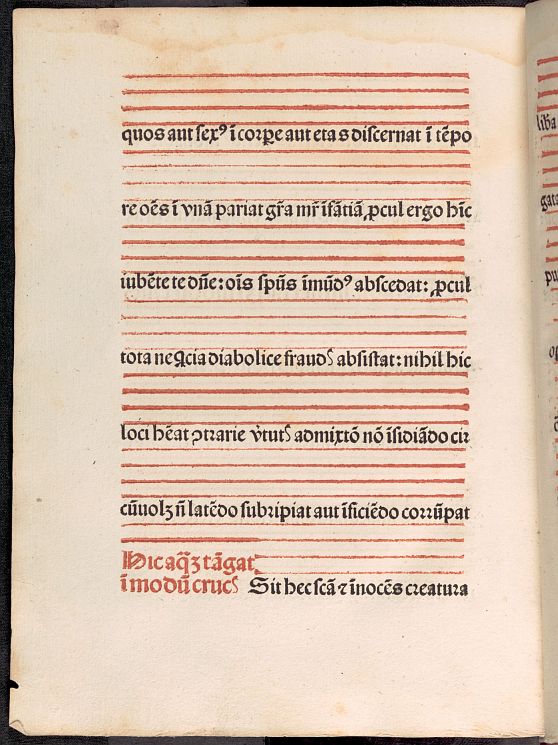 quos aut sexꝰ ī corꝑe aut etas discernat ī tēpo
re oēs ī vnā pariat gr̄a mr̄ īfātiā ꝓcul ergo hīc
iubēte te dn̄e: oīs sp̄us īmūdꝰ abscedat: ꝓcul
tota neq̄cia diabolice fraudꝭ absistat: nihil hic
loci hēat ꝯtrarie v̄tutꝭ admixtō nō īsidiādo cir
cūuolꝫ n̄ latēdo subripiat aut īficiēdo corrūpat
Hic aq̄ꝫ tāgat
ī modū crucꝭ Sit hec scā ⁊ īnocēs creatura
liba
gata
pu